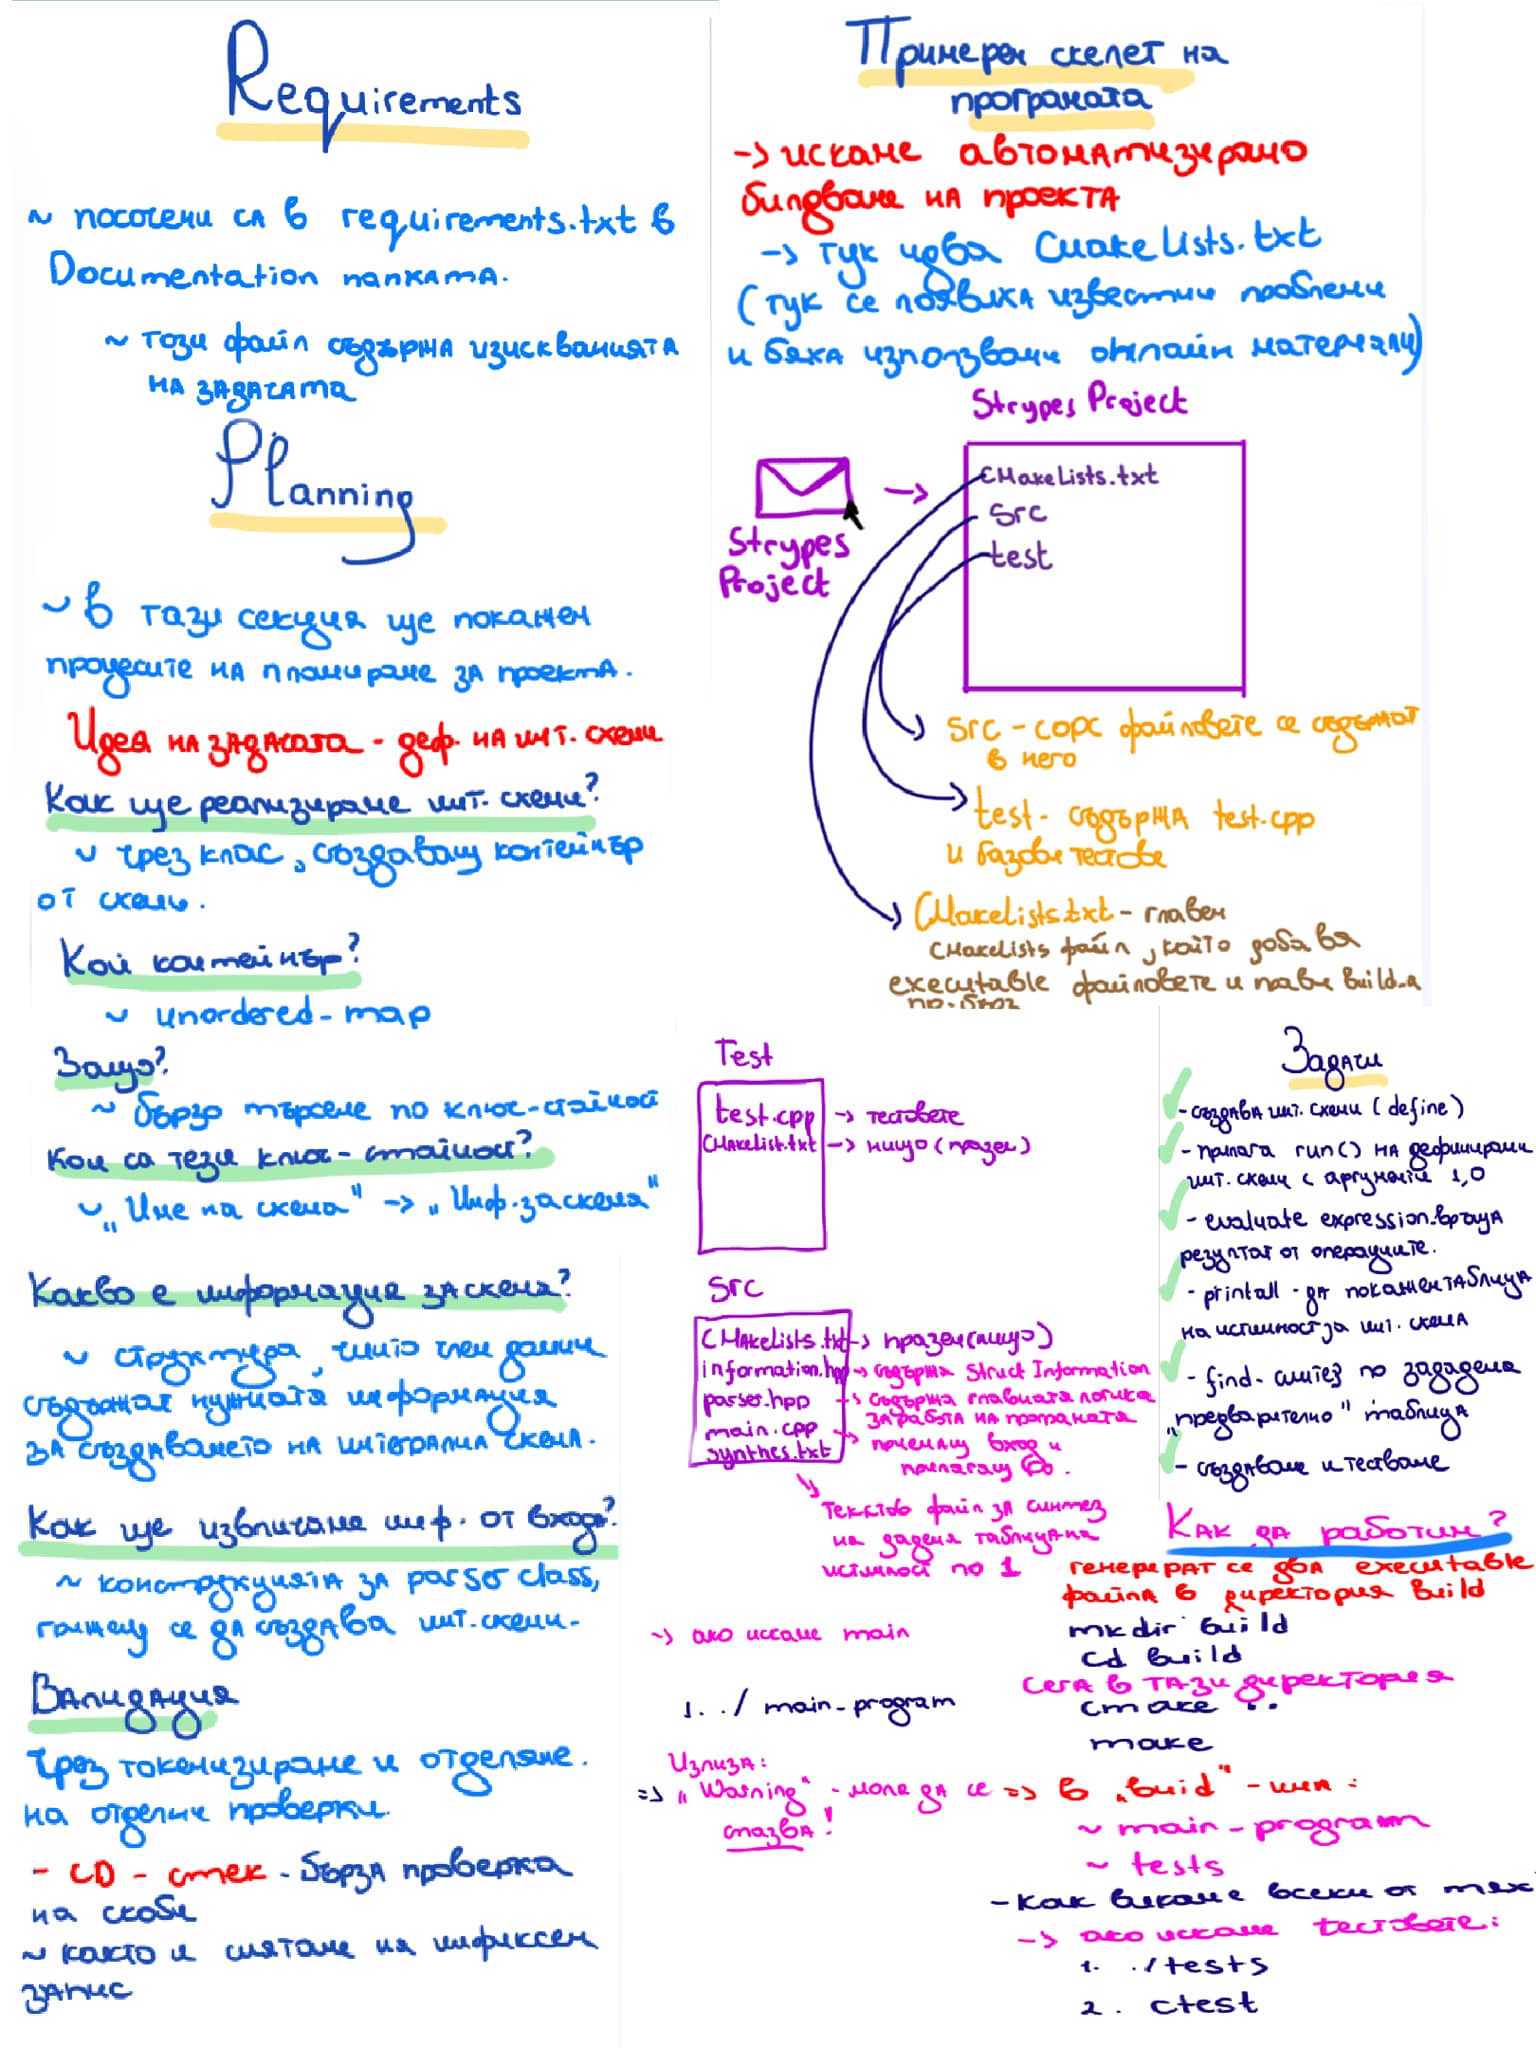 Requirements
~ посочени са в requirements.txt в
Documentation папката.
~ този файл съдържа изискванията
на задачата
Planning
~ В тази секция ще покажем
процесите на планиране за проекта.
Идея на задачата - деф. на инт. схеми
Как ще реализираме инт. схеми?
~ чрез клас, създаващ контейнър
от схеми.
Кой контейнър?
~ unordered_map
Защо?
~ бързо търсене по ключ-стойност
Кои са тези ключ-стойност?
~ „Име на схема" -> „Инф. за схема"
Какво е информация за схема?
~ структура, чиито член данни
съдържат нужната информация
за създаването на интегрална схема.
Как ще извличаме инф. от входа?
~ конструкцията за parser class,
грижещ се да създава инт. схеми.
Валидация
Чрез токенизиране и отделяне
на отделни проверки.
- СД - стек - бърза проверка
на скоби
~ както и смятане на инфиксен
запис
Примерен скелет на
програмата
-> искаме автоматизирано
билдване на проекта
-> тук идва CMakeLists.txt
(тук се появиха известни проблеми
и бяха използвани онлайн материали)
Strypes Project
CMakeLists.txt
src
test
Strypes
Project
src - сорс файловете се съдържат
в него
test - съдържа test.cpp
и базови тестове
CMakeLists.txt - главен
CMakeLists файл, който добавя
executable файловете и прави build-а
по-бърз
Test
test.cpp -> тестовете
CMakeList.txt -> нищо (празен)
src
CMakeLists.txt -> празен (нищо)
information.hpp -> съдържа Struct Information
parser.hpp -> съдържа главната логика
за работа на програмата
main.cpp -> почеващ вход и
прилагащ го.
synthes.txt
Текстов файл за синтез
на дадена таблица на
истинност по 1
Задачи
- създава инт. схеми (define)
- прилага run() на дефинирани
инт. схеми с аргументи 1,0
- evaluate expression-връща
резултат от операциите.
- printall - да покажем таблица
на истинност за инт. схема
- find - синтез по зададена
„предварително" таблица
- създаване и тестване
Как да работим?
генерират се два executable
файла в директория build
mkdir build
cd build
Сега в тази директория
cmake ..
make
=> в „buid" - има :
~ main_program
~ tests
- Как викаме всеки от тях
-> ако искаме тестовете:
1. ./tests
2. ctest
-> ако искаме main
1. ./main_program
Излиза:
=> „Warning" - моля да се
спазва!